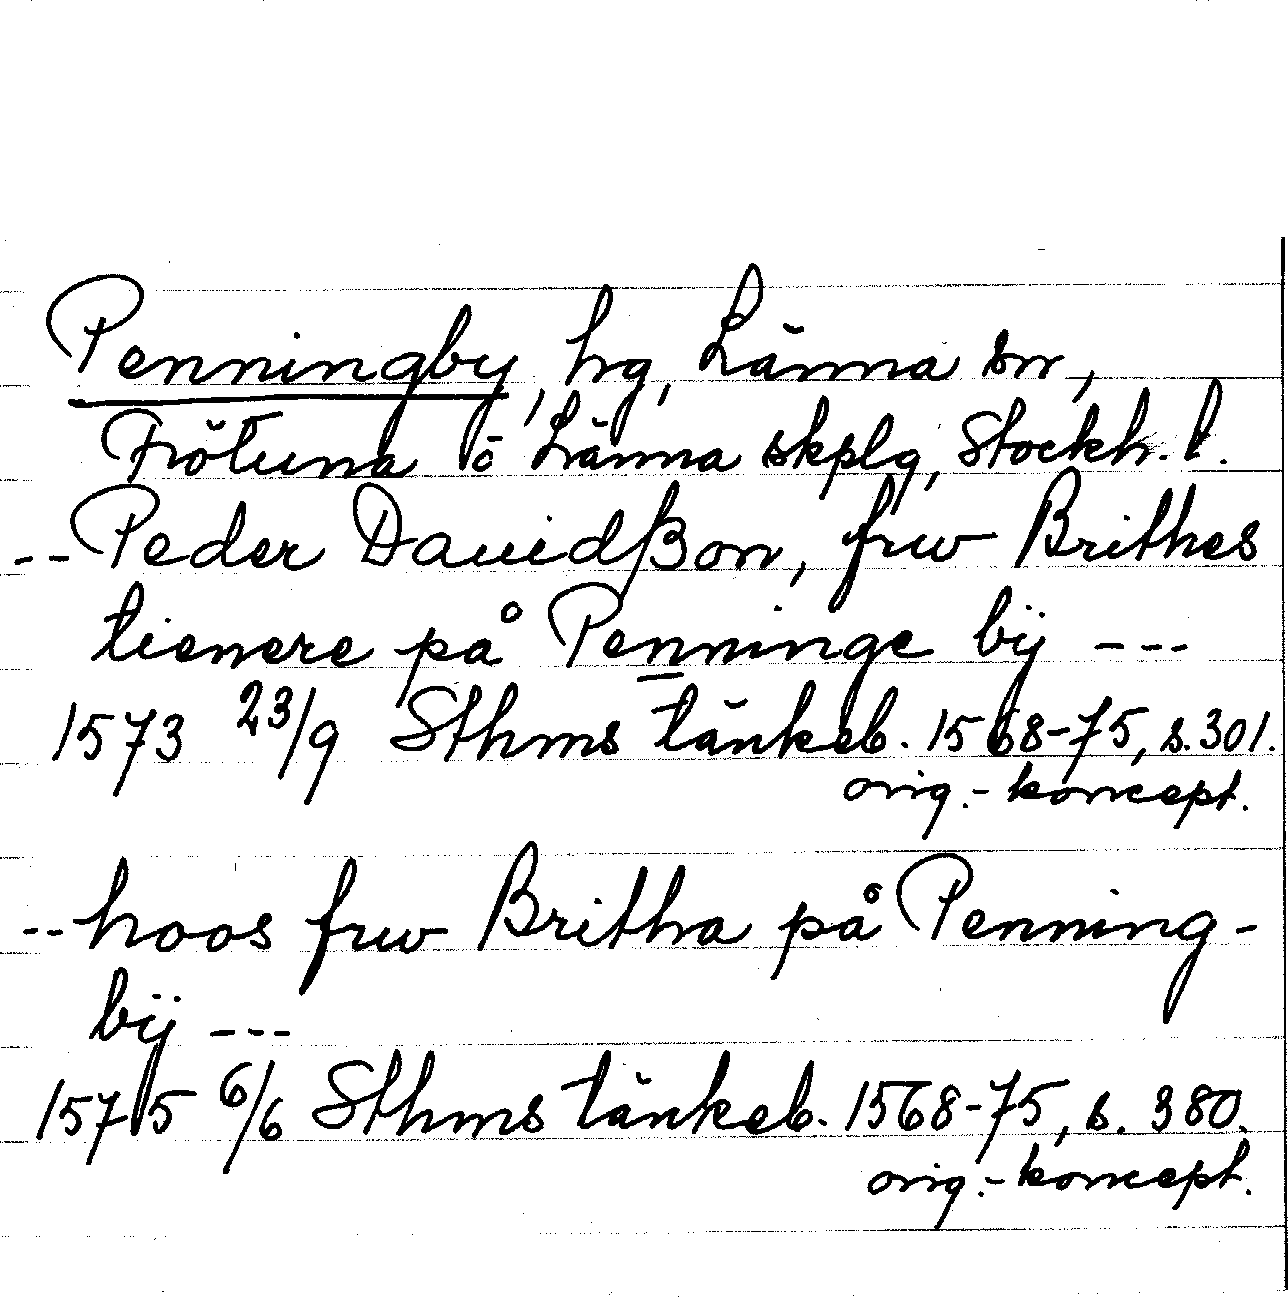 Penningby, hg, Länna sn,
Frötuna o Länna skplg, Stockh. l.
-- Peder Dauidßon, frw Brithes
tienere på Penninge bÿ ---
1573 23/9 Sthms tänkeb. 1568-75, s. 301.
orig.- koncept.
-- hoos frw Britha på Penning-
bÿ ---
1575 6/6 Sthms tänkeb. 1568-75, s. 380.
orig.- koncept.